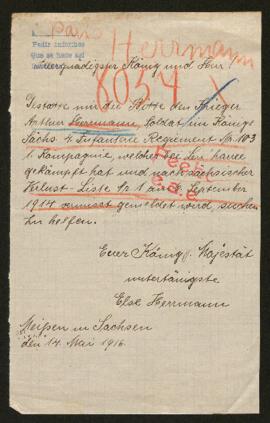 Paris
Herrmann
Pedir informes
Que se hace aqí
Allergnädigster König und Herr.
8034
Gestatte mir die Bitte den Krieger
Arthur Herrmann, Soldat im Königl.
Sächs. Infanterie Regiment Nr. 103
1. Kompagnie, welcher bei
gekämpft hat und nach sächsischer
Verlust-Liste Nr 1 September
1914 vermisst gemeldet wird, suchen
zu helfen.
Eurer Königl. Majestät
untertänigste
Else Herrmann
Meißen in Sachsen
den 14. Mai 1916.